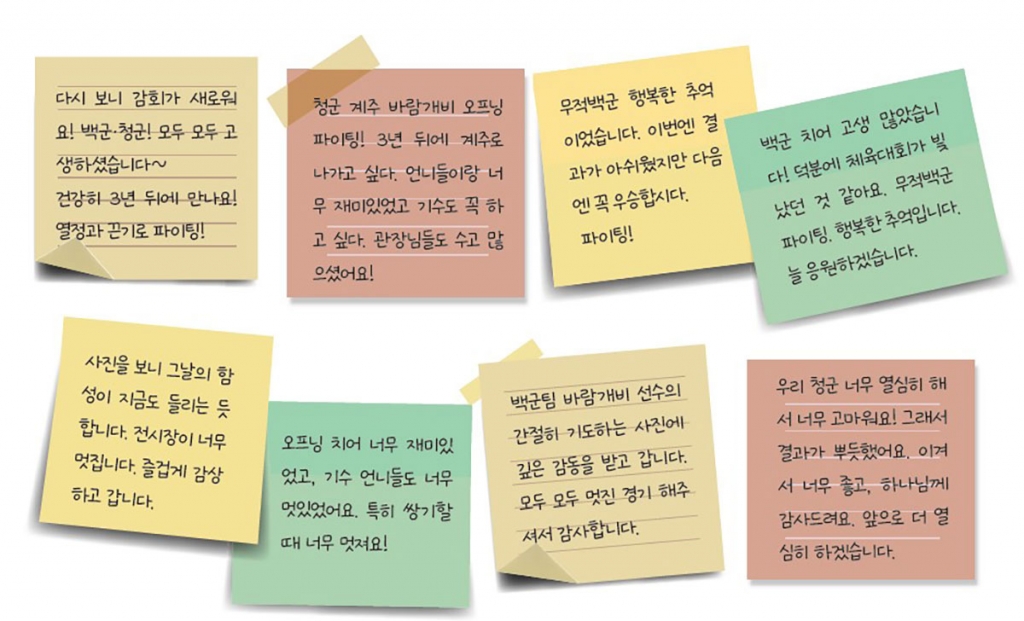 다시 보니 감회가 새로워
요! 백군·청군! 모두 모두 고
생하셨습니다~
건강히 3년 뒤에 만나요!
열정과 끈기로 파이팅!
청군 계주 바람개비 오프닝
파이팅! 3년 뒤에 계주로
나가고 싶다. 언니들이랑 너
무 재미있었고 기수도 꼭 하
고 싶다. 관장님들도 수고 많
으셨어요!
무적백군 행복한 추억
이었습니다. 이번엔 결
과가 아쉬웠지만 다음
엔 꼭 우승합시다.
파이팅!
백군 치어 고생 많았습니
다! 덕분에 체육대회가 빛
났던 것 같아요. 무적백군
파이팅. 행복한 추억입니다.
늘 응원하겠습니다.
사진을 보니 그날의 함
성이 지금도 들리는 듯
합니다. 전시장이 너무
멋집니다. 즐겁게 감상
하고 갑니다.
오프닝 치어 너무 재미있
었고, 기수 언니들도 너무
멋있었어요. 특히 쌍기할
때 너무 멋져요!
백군팀 바람개비 선수의
간절히 기도하는 사진에
깊은 감동을 받고 갑니다.
모두 모두 멋진 경기 해주
셔서 감사합니다.
우리 청군 너무 열심히 해
서 너무 고마워요! 그래서
결과가 뿌듯했어요. 이겨
서 너무 좋고, 하나님께
감사드려요. 앞으로 더 열
심히 하겠습니다.